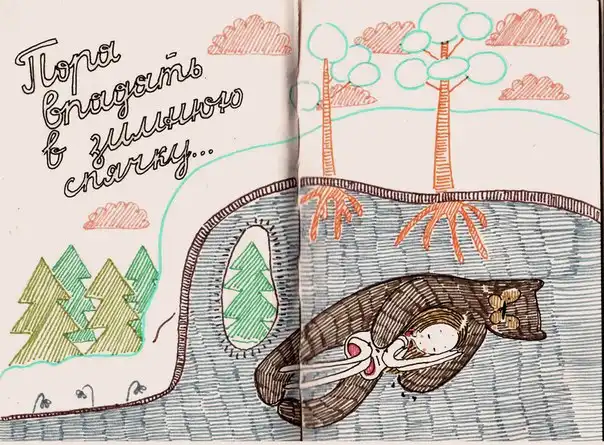 Пора
впадать
в зимнюю
спячку...